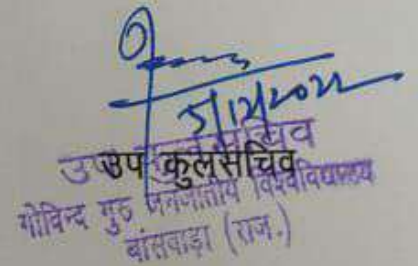 उप कुलसचिव
उप कुलसचिव
गोविन्द गुरु जनजातीय विश्वविद्यालय
बांसवाड़ा (राज.)